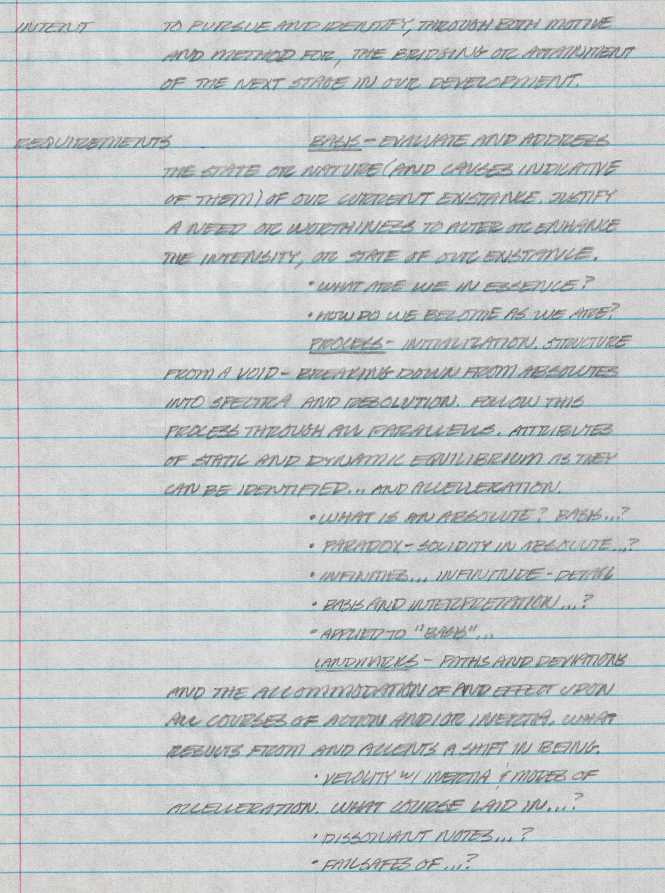 INTENT TO PURSUE AND IDENTIFY, THROUGH BOTH MOTIVE
AND METHOD FOR, THE BRIDGING OR ATTAINMENT
OF THE NEXT STAGE IN OUR DEVELOPMENT.
REQUIREMENTS BASIS - EVALUATE AND ADDRESS
THE STATE OR NATURE (AND CAUSES INDICATIVE
OF THEM) OF OUR CURRENT EXISTANCE. JUSTIFY
A NEED OR WORTHINESS TO ALTER OR ENHANCE
THE INTENSITY, OR STATE OF OUR EXISTANCE.
• WHAT ARE WE IN ESSENCE?
• HOW DO WE BECOME AS WE ARE?
PROCESS - INITIALIZATION. STRUCTURE
FROM A VOID - BREAKING DOWN FROM ABSOLUTES
INTO SPECTRA AND RESOLUTION. FOLLOW THIS
PROCESS THROUGH ALL PARALLELS. ATTRIBUTES
OF STATIC AND DYNAMIC EQUILIBRIUM AS THEY
CAN BE IDENTIFIED... AND ACCELLERATION.
• WHAT IS AN ABSOLUTE? BASIS...?
• PARADOX - SOLIDITY IN ABSOLUTE...?
• INFINITIES... INFINITUDE - DETAIL
• BASIS AND INTERPRETATION...?
• APPLIED TO "BASIS"...
LANDMARKS - PATHS AND DEVIATIONS
AND THE ACCOMMODATION OF AND EFFECT UPON
ALL COURSES OF ACTION AND/OR INERTIA. WHAT
RESULTS FROM AND ACCENTS A SHIFT IN BEING.
• VELOCITY W/ INERTIA & MODES OF
ACCELLERATION. WHAT COURSE LAID IN...?
• DISSONANT NOTES...?
• FAILSAFES OF...?